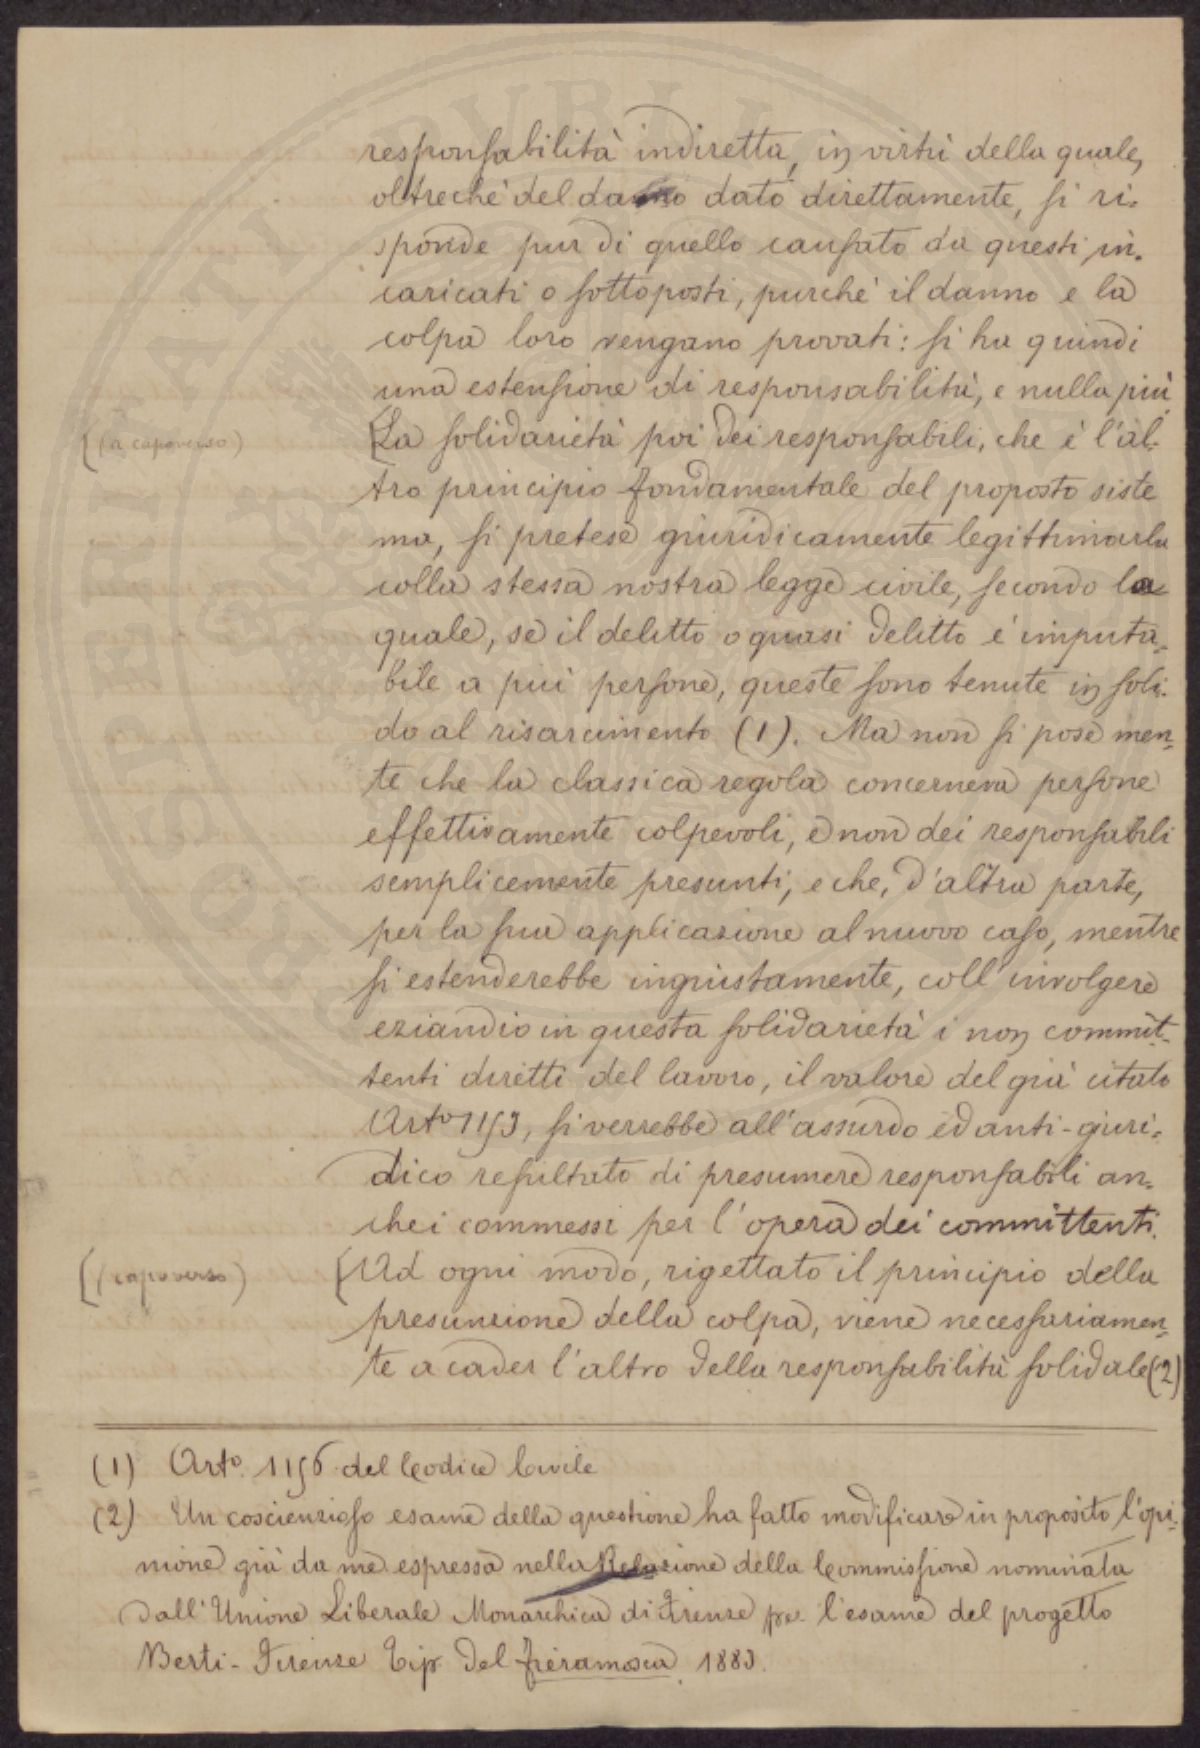 responsabilità indiretta, in virtù della quale,
oltreché del danno dato direttamente, si ri-
sponde pur di quello causato da questi in-
caricati o sottoposti, purché il danno e la
colpa loro vengano provati: si ha quindi
una estensione di responsabilità, e nulla più.
[(a capoverso)
[La solidarietà poi dei responsabili, che è l'al-
tro principio fondamentale del proposto siste
ma, si pretese giuridicamente legittimarla
colla stessa nostra legge civile, secondo la
quale, se il delitto o quasi delitto è imputa-
bile a più persone, queste sono tenute in soli-
do al risarcimento (1). Ma non si pose men-
te che la classica regola concerneva persone
effettivamente colpevoli, e non dei responsabili
semplicemente presunti, e che, d'altra parte,
per la sua applicazione al nuovo caso, mentre
si estenderebbe ingiustamente, coll'involgere
eziandio in questa solidarietà i non commit-
tenti diretti del lavoro, il valore del già citato
Arto 1153, si verrebbe all'assurdo ed anti-giuri-
dico resultato di presumere responsabili an-
che i commessi per l'opera dei committenti.
[(capoverso)
[Ad ogni modo, rigettato il principio della
presunzione della colpa, viene necessariamen-
te a cader l'altro della responsabilità solidale (2)
(1) Arto. 1156 del Codice Civile
(2) Un coscienzioso esame della questione ha fatto modificare in proposito l'opi-
nione già da me espressa nella Relazione della Commissione nominata
dall'Unione Liberale Monarchica di Firenze per l'esame del progetto
Berti - Firenze Tip. del Fieramosca 1883.